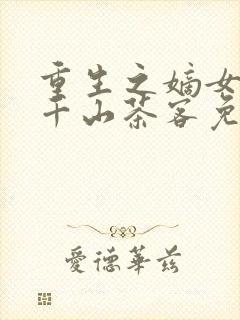 重生之嫡女
千山茶客免
愛德華茲